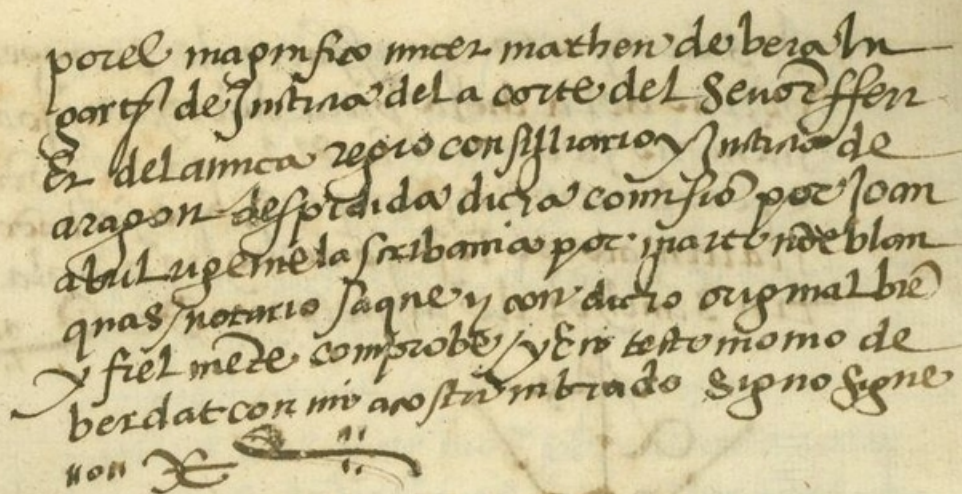 por el magnifico micer matheu de bera lu
gart de Justicia de la corte del Senor ferr
Er de lanuca regio consiliario y Justicia de
aragon despedida dicha comision por Joan
abul rigente la scribania por martin de blan
quas notario saque y con dicho original bie
y fiel mete comprobe y en testomonio de
berdat con mi acostumbrado signo signe